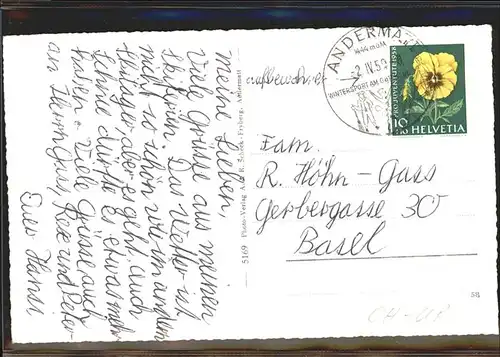 Meine Lieben,
Viele Grüsse aus meinen
Skiferien. Das Wetter ist
nicht so schön wie im andern
aber es geht. Auch
Schnee dürfte es etwas mehr
haben. Viele Grüsse auch
an Herrn Gass, Ree und Peter
Euer Hansi
aufbewahren
5169 Photo-Verlag A. & R. Andermatt
ANDERMATT
1444 m ü M
-2. IV. 59
WINTERSPORT AM
PRO JUVENTUTE 1958
10
+10
HELVETIA
Fam.
R. Höhn-Gass
Gerbergasse 30
Basel